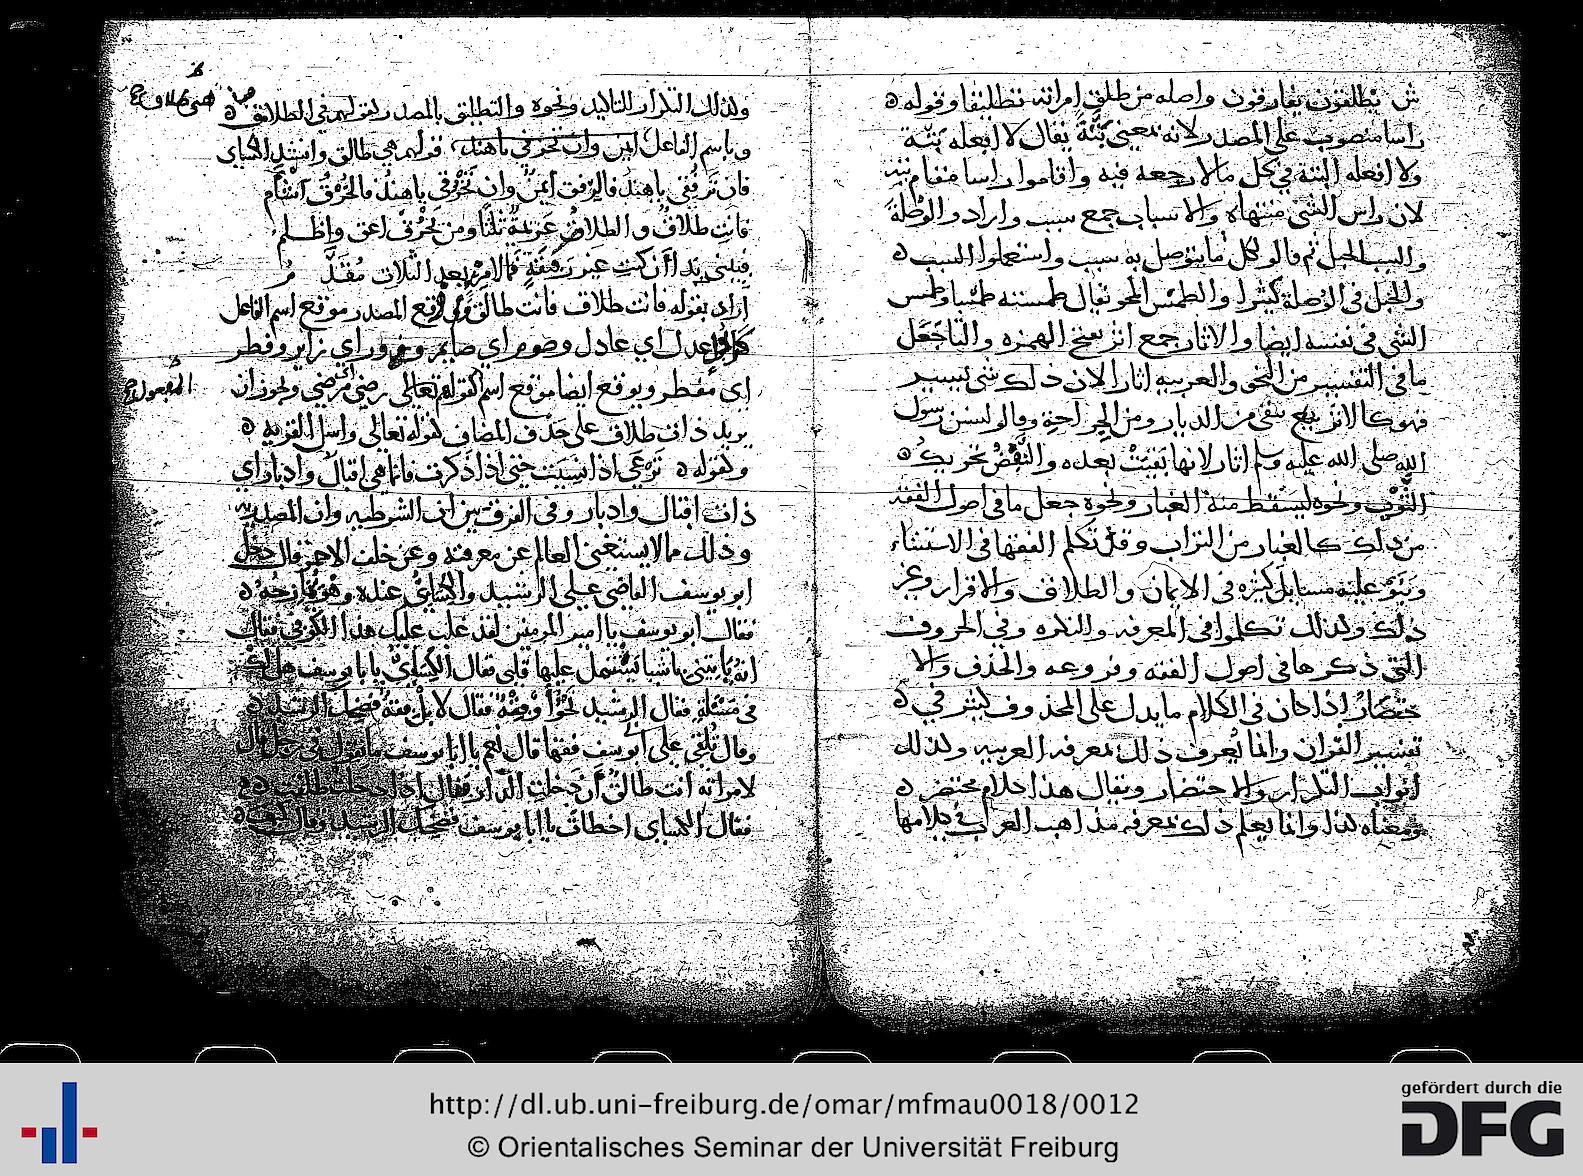 ش يطلقون يفارقون واصله من طلق امراته تطليقا وقوله ه
راسا منصوب على المصدر لانه بمعنى بَتَّةً يقال لا افعله بَتّة
ولا افعله البتة في كل ما لا رجعه فيه واقاموا راسا مقام بتة
لان راس الشي منتهاه والاسباب جمع سبب واراد والوُصْلَة
والسبب الحبل ثم قالو لكل ما يتوصل به سبب واستعملوا السبب ه
والحبل في الوُصلة كثيرا والطمس المحو يقال طمسته طمسا وطمس
الشي في نفسه ايضا والاثار جمع اثر بفتح الهمزه والثا جعل
ما في التفسير من النحو والعربيه اثارا لان ذلك شي يسير
فهو كالاثر يبقى من الديار ومن الجراحة وقالو لسنن رسول
الله صلى الله عليه وسلم اثار لانها بقيت بعده والنَّفْض تحريك ه
الثَّوْب ونحوه ليسقط منه الغبار ونحوه جعل ما في اصول الفقه
من ذلك كالغبار من التراب وقد تكلم الفقها في الاستثناء
وبَنَوْ عليه مسايل كثيره في الايمان والطلاق والاقرار وغير
ذلك وكذلك تكلموا في المعرفه والنكره وفي الحروف
التي ذكرها في اصول الفقه وفروعه والحذف والا
ختصار اذا كان في الكلام ما يدل على المحذوف كثير في ه
تفسير القران وانما يُعرف ذلك بمعرفه العربيه وكذلك
ابواب التكرار والاختصار ويقال هذا كلام مختصر ه
ومعناه كذا وانما يعلم ذلك بمعرفه مذاهب العرب في كلامها
ولذلك التكرار للتاكيد ونحوه والتطليق بالمصدر كقولهم في الطلاق ه
وباسم الفاعل قولهم هي طالق وانشد الكساي
فان تَرفُقي يا هند فالرفق ايمن وان تَخْرُقي يا هند فالخُرْقُ اشام
فانت طلاقٌ والطلاق عَزيمةٌ ثلثا ومن يخْرُق اعق واظلم
فبيني بها ان كنت غير رَفيقَةٍ فما لامرئ بعد الثلاث مُقَدَّمُ
اراد بقوله فانت طلاق فانت طالق واوقع المصدر موقع اسم الفاعل
كما قالو عدل اي عادل وصوم اي صايم وزور اي زاير وفطر
اي مفطر ويوقع ايضا موقع اسم كقوله تعالى رضي اي مرضي ويجوز ان
يريد ذات طلاق على حذف المضاف كقوله تعالى واسل القريه ه
وكقوله ه تَرْعَى اذا نسيت حتى اذا ذكرت فانما هي اقبالٌ وادبار اي
ذات اقبال وادبار وفي الفرق بين ان الشرطيه وان المصدريه
وذلك مما لا يستغني العالم عن معرفته وعن خلف الاحمر قال دخل
ابو يوسف القاضي على الرشيد والكسايي عنده وهو يمازحُه ه
فقال ابو يوسف يا امير المومنين لقد غلب عليك هذا الكوفي فقال
انه ياتيني باشيا يَشتمل عليها قلبي فقال الكسايي يا با يوسف هل لك
في مَسْئلةٍ فقال الرشيد نَحْوًا أوْ فِقْهًا فقال لا بل فقهٌ فضحك الرشيد ه
وقال تُلقي على ابو يوسف فقها قال نعم يا ابا يوسف ما تقول في رجل قال
لامراته انت طالق أن دخلت الدار فقال اذا دخلت طلقت ه
فقال الكساي اخطات يا ابا يوسف فضحك الرشيد وقال كيف ه
http://dl.ub.uni-freiburg.de/omar/mfmau0018/0012
© Orientalisches Seminar der Universität Freiburg
gefördert durch die
DFG